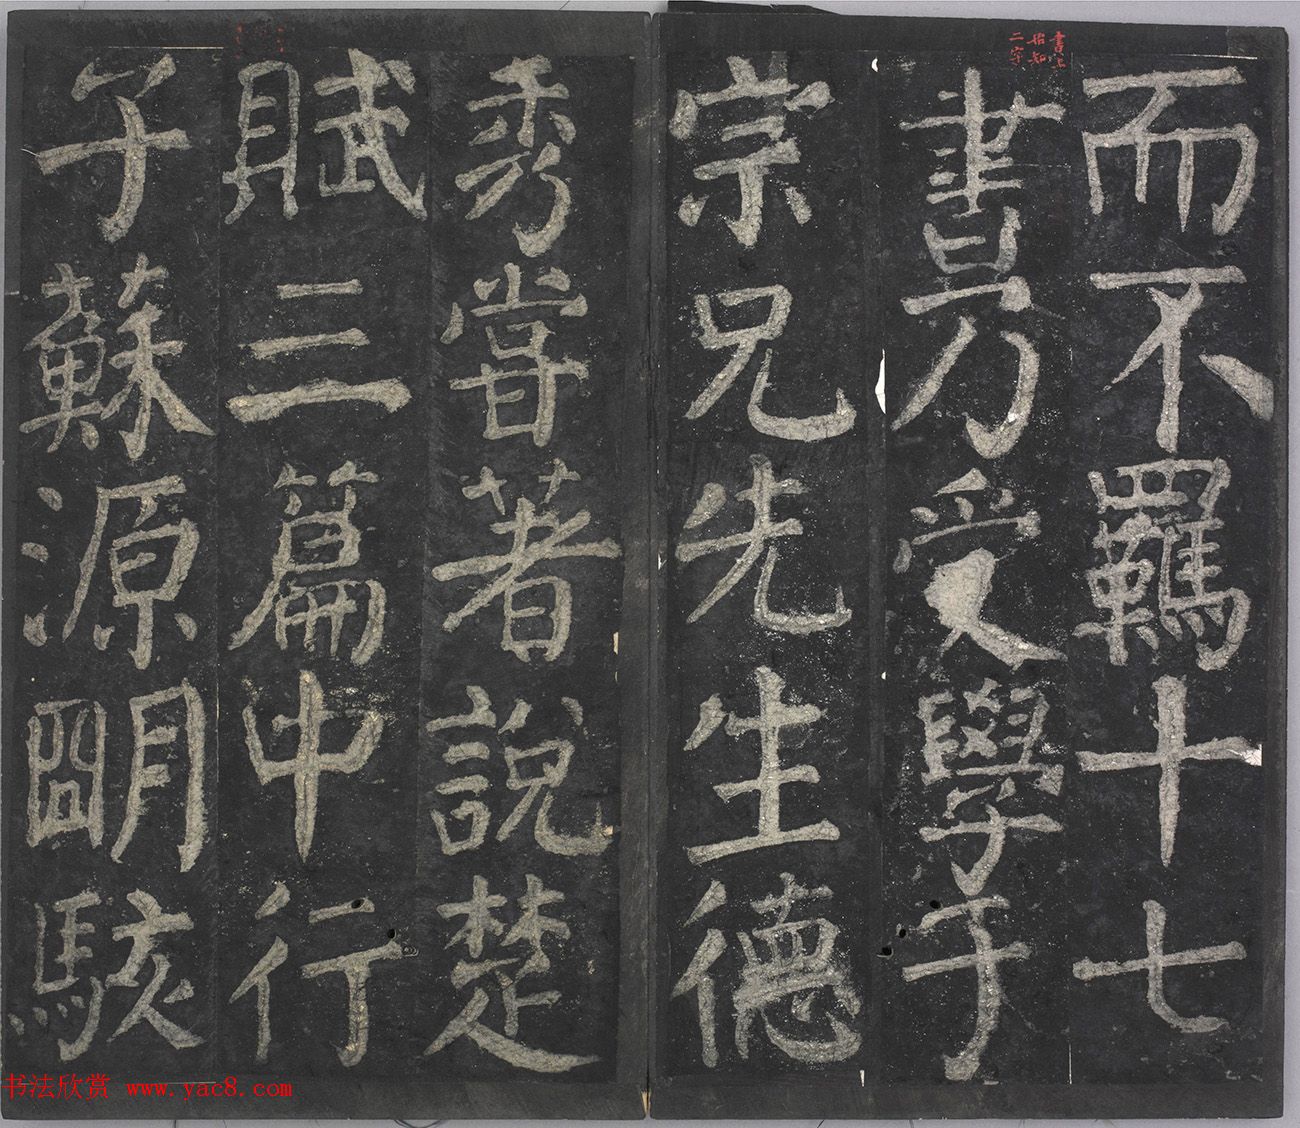 書上
始知
二字
而不羈十七
書乃受學于
宗兄先生德
秀嘗著說楚
賦三篇中行
子蘇源朙駭
书法欣赏 www.yac8.com